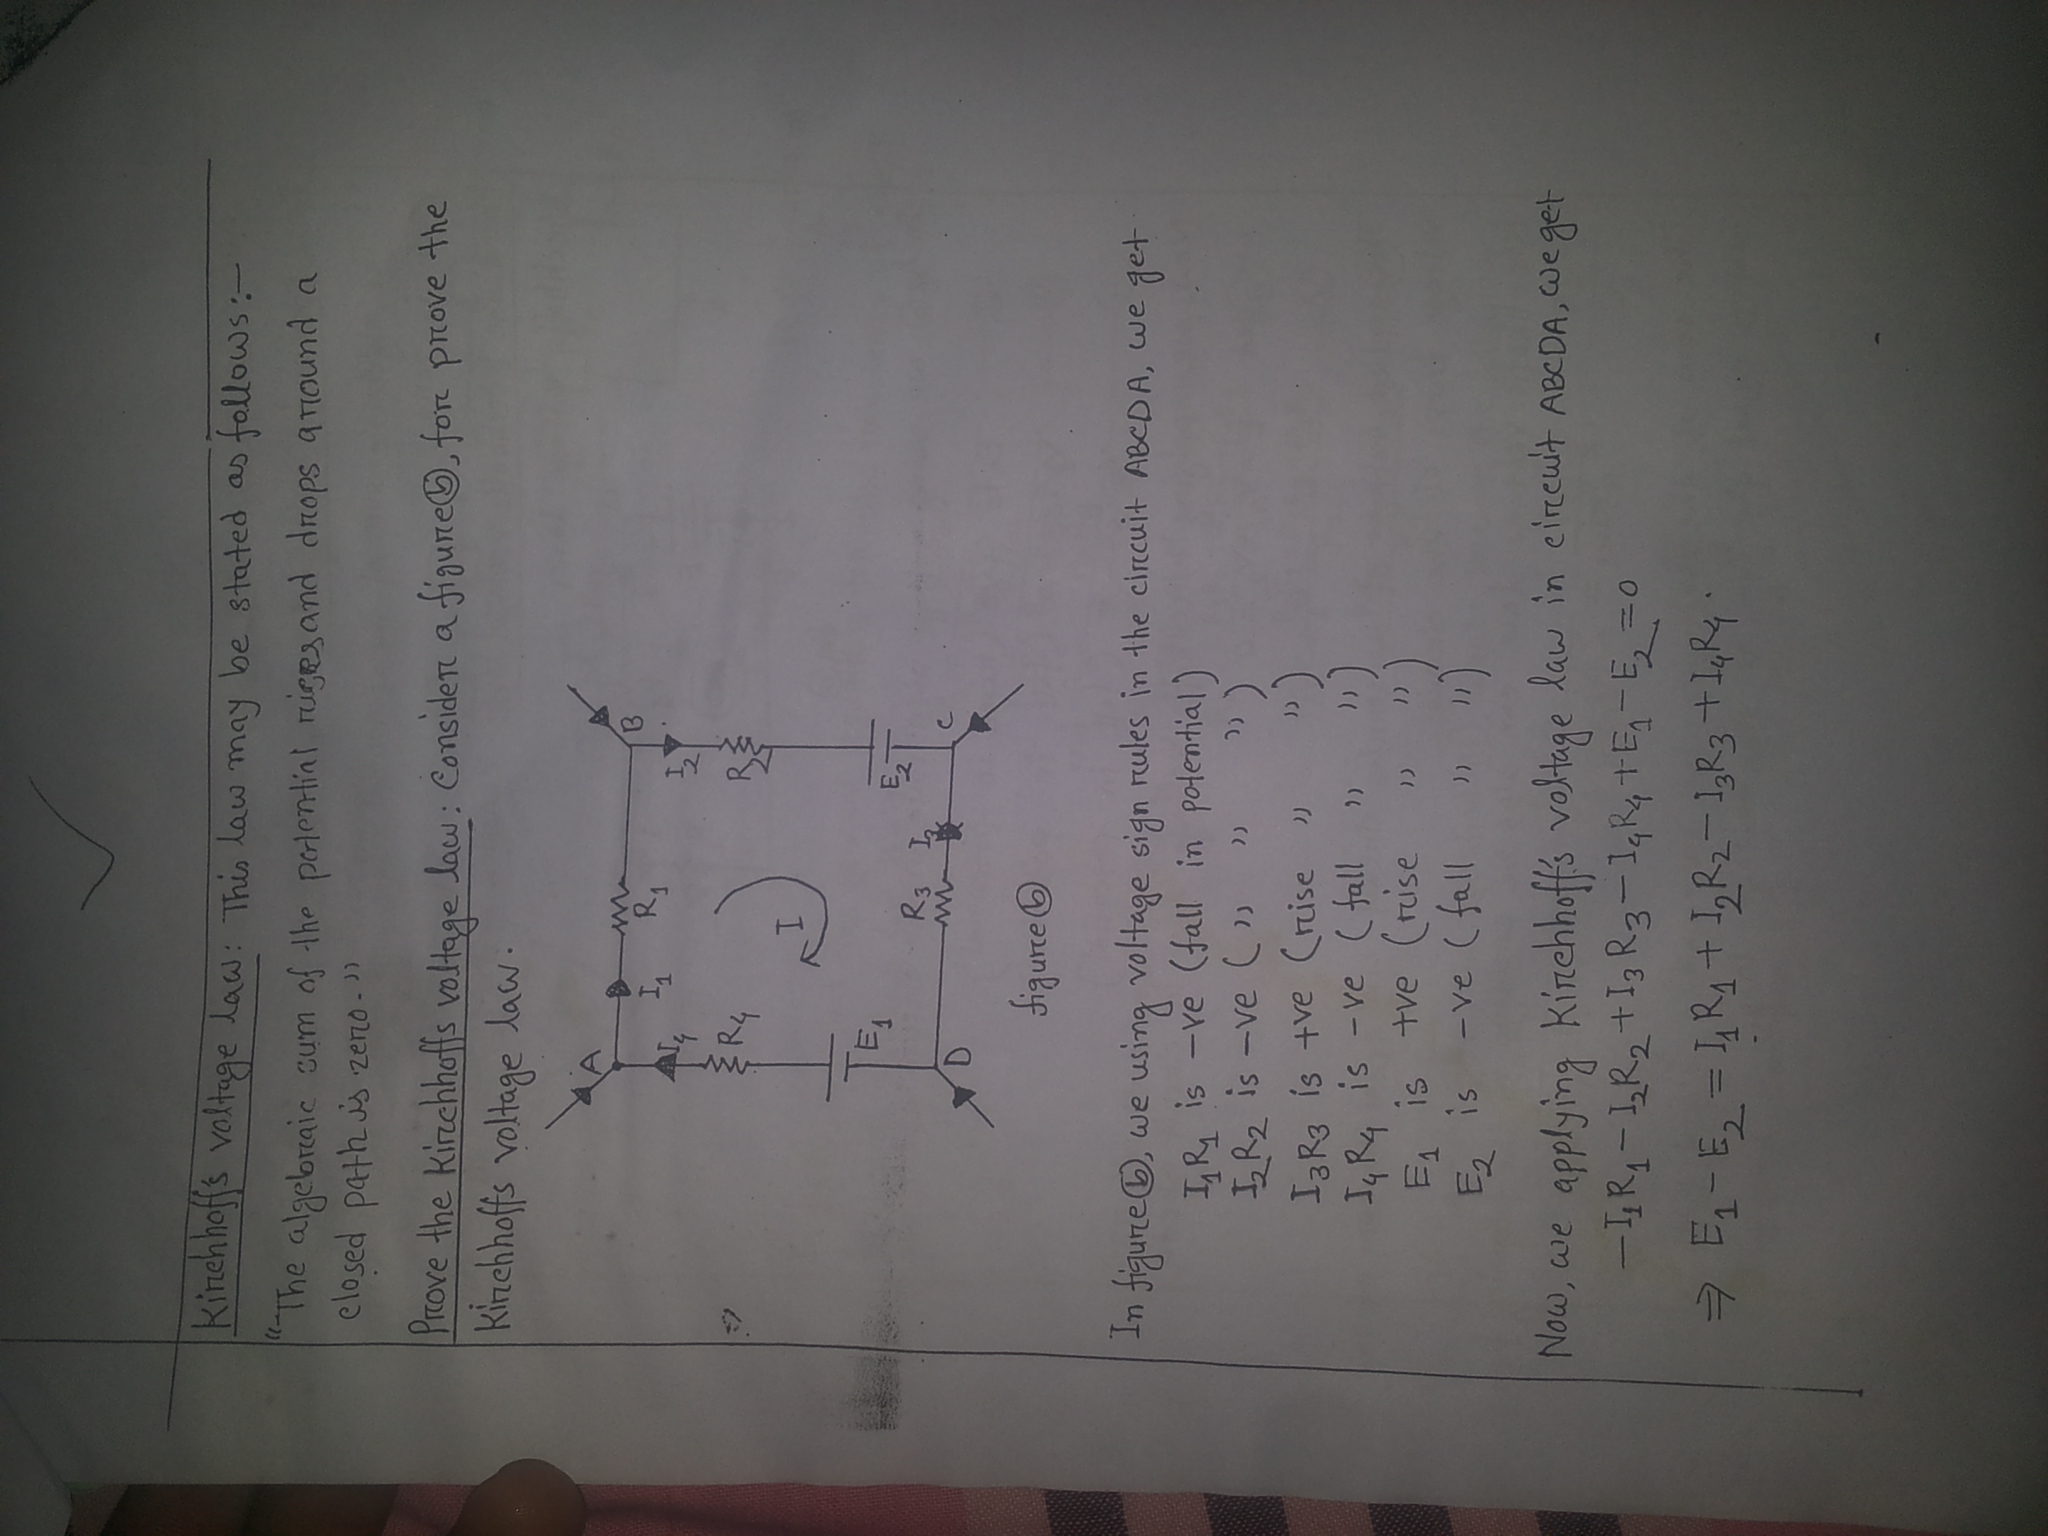 Kirchhoff's voltage law: This law may be stated as follows:-
"The algebraic sum of the potential rises and drops around a
closed path is zero."
Prove the Kirchhoffs voltage law: Consider a figure ⓑ, for prove the
Kirchhoffs voltage law.
A
B
I₁
R₁
I₄
I₂
⇒
R₄
R₂
I
E₁
E₂
R₃
I₃
D
C
figure ⓑ
In figure ⓑ, we using voltage sign rules in the circuit ABCDA, we get
I₁R₁ is -ve (fall in potential)
I₂R₂ is -ve ( " " " )
I₃R₃ is +ve (rise " " )
I₄R₄ is -ve ( fall " " )
E₁ is +ve (rise " " )
E₂ is -ve ( fall " " )
Now, we applying Kirchhoff's voltage law in circuit ABCDA, we get
-I₁R₁ - I₂R₂ + I₃R₃ - I₄R₄ + E₁ - E₂ = 0
⇒ E₁ - E₂ = I₁R₁ + I₂R₂ - I₃R₃ + I₄R₄.